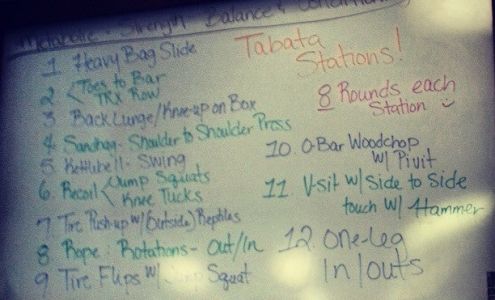 Metabolic - Strength Balance & Conditioning
Tabata
Stations!
8 Rounds each
Station
1. Heavy Bag Slide
2 < Toes to Bar
TRX Row
3 Back Lunge/Knee-up on Box
4. Sandbag - Shoulder to Shoulder Press
5. Kettlebell - Swing
6. Recoil < Jump Squats
Knee Tucks
7. Tire Push-up w/(Outside) Reptiles
8 Rope Rotations - Out/In
9 Tire Flips w/ Jump Squat
10 O-Bar Woodchop
w/ Pivit
11 V-sit w/ Side to Side
touch w/ Hammer
12. One-leg
In/outs